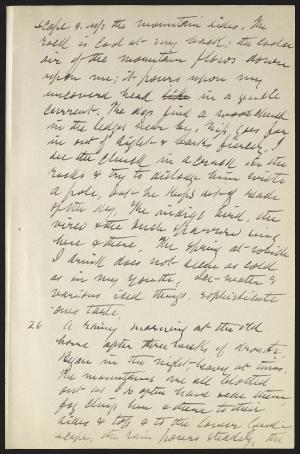 scape & up the mountain sides. The
rock is cool at my back; the cooler
air of the mountain flows down
upon me; it pours upon my
uncovered head like in a gentle
current. The dogs find a woodchuck
in the ledges near by; Nig goes far
in out of sight & barks fiercely. I
see the chuck in a crack in the
rocks & try to dislodge him with
a pole, but he keeps out of reach
of the dog. The indigo bird, the
vireo & the bush sparrow sing
here & there. The spring at which
I drank does not seem as cold
as in my youth, ice-water &
various iced things sophisticate
ones taste.
26 A rainy morning at the old
home after three weeks of drouth,
Began in the night, heavy at times.
The mountains are all blotted
out as I so often have seen them,
fog clings here & there to their
sides & tops & to the lower land-
scape, the rain pours steadily, the